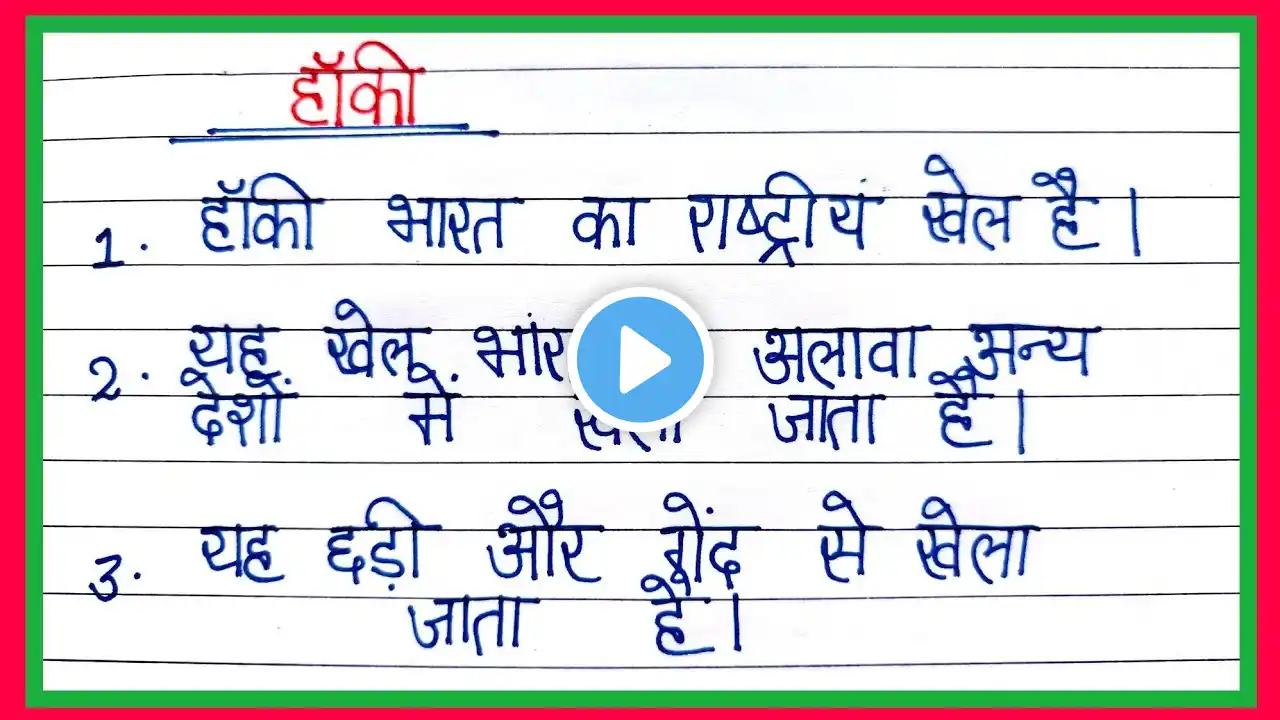 हॉकी
1. हॉकी भारत का राष्ट्रीय खेल है।
2. यह खेल अलावा अन्य
देशों में खेला जाता है।
3. यह छड़ी और गेंद से खेला
जाता है।